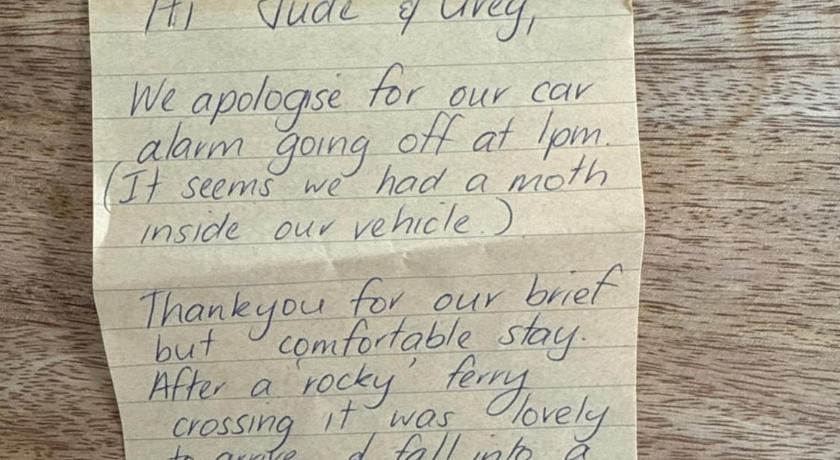 Hi Jude & Greg,
We apologise for our car
alarm going off at 1pm.
(It seems we had a moth
inside our vehicle.)
Thankyou for our brief
but comfortable stay.
After a 'rocky' ferry
crossing it was lovely
to arrive & fall into a